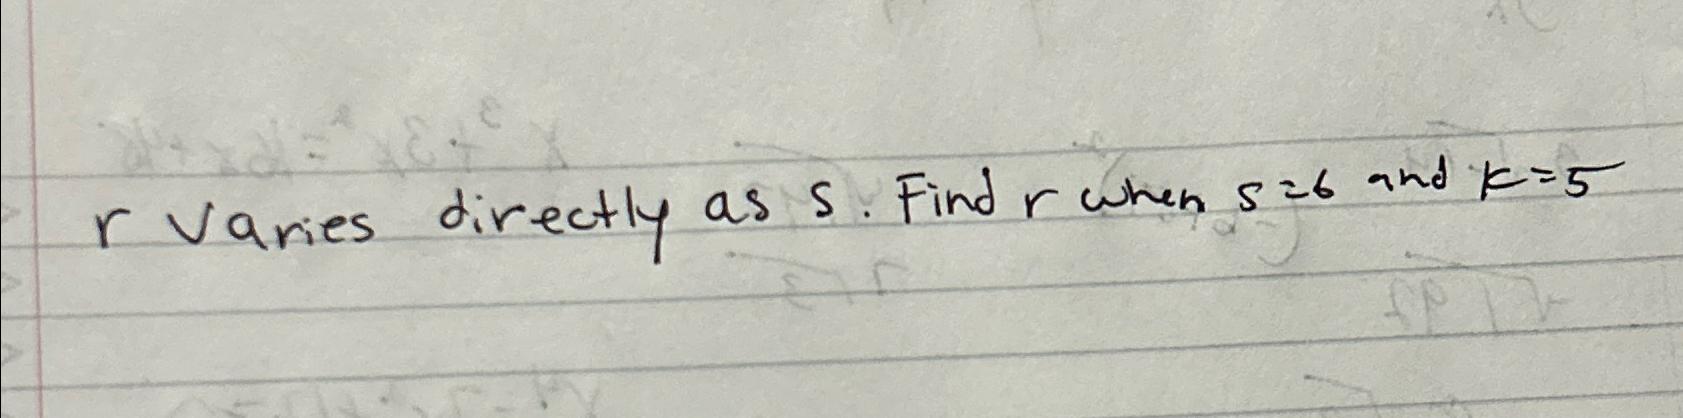 r varies directly as s. Find r when s=6 and k=5